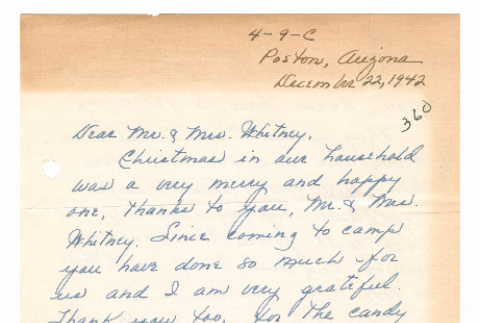 4-9-C
Poston, Arizona
December 22, 1942
360
Dear Mr. & Mrs. Whitney,
Christmas in our household
was a very merry and happy
one, thanks to you, Mr. & Mrs.
Whitney. Since coming to camp
you have done so much for
us and I am very grateful.
Thank you too, for the candy